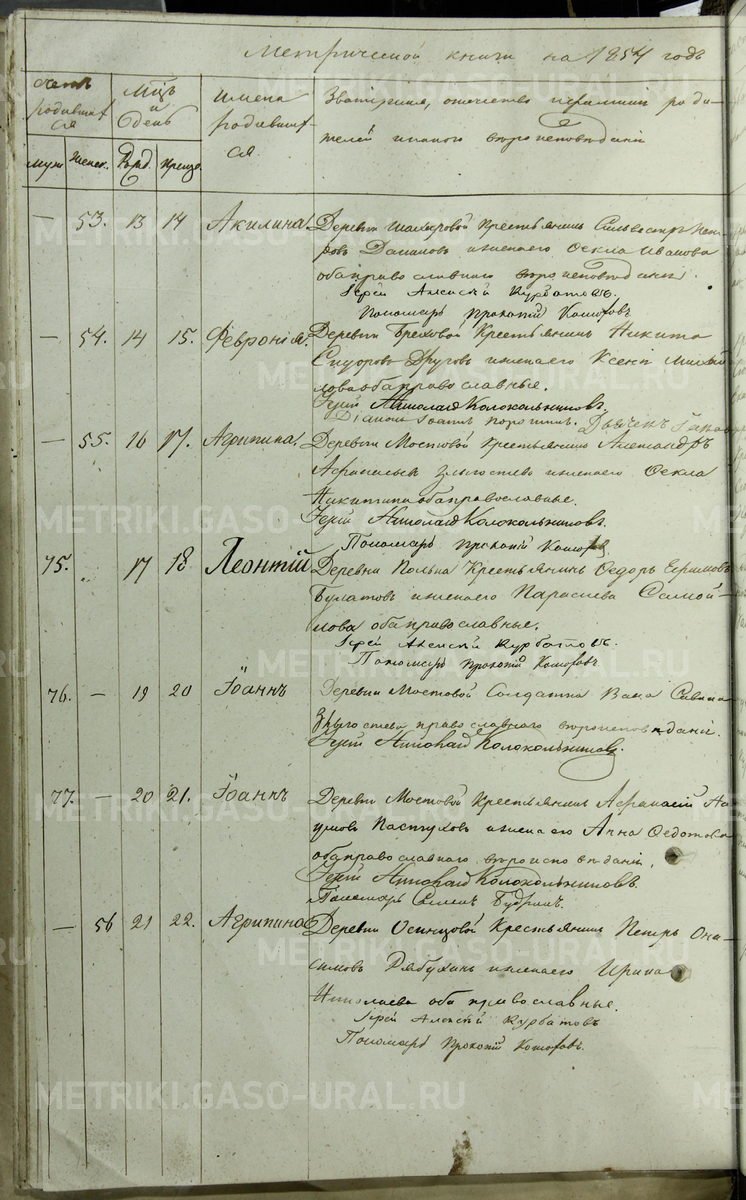 Метрической книги на 1854 годъ
счетъ родившихся
Мцъ и день
имена родившихся
Звание, имя, отчество и фамилия родителей и какого вероисповедания
муж женск. Рожд. Крещ.
— 53. 13 14 Акилина. Деревни Крестьянинъ Сильвестръ Петровъ
Даниловъ и жена его Фекла Иванова
оба православного вероисповедания.
Іерей Алексій Курбатовъ.
Пономарь Прокопій
— 54. 14 15. Февронія. Деревни Бреховой Крестьянинъ Никита
Сидоровъ Друговъ и жена его Ксенія Михай
лова оба православные.
Іерей Николай Колокольниковъ.
Діаконъ Іоаннъ Дьячекъ
— 55. 16 17. Агрипина. Деревни Мостовой Крестьянинъ Александръ
Афанасьевъ и жена его Фекла
Никитина оба православные.
Іерей Николай Колокольниковъ.
Пономарь Прокопій
75. 17 18 Леонтій Деревни Крестьянинъ Федоръ Ефимовъ
Булатовъ и жена его Парасковья Самой
лова оба православные.
Іерей Алексій Курбатовъ.
Пономарь Прокопій
76. — 19 20 Іоаннъ Деревни Мостовой Солдатка
православного вероисповеданія.
Іерей Николай Колокольниковъ.
77. — 20 21. Іоаннъ Деревни Мостовой Крестьянинъ Афанасій На
умовъ Пастуховъ и жена его Анна Федотова
оба православного вероисповеданія.
Іерей Николай Колокольниковъ.
Пономарь Семенъ
— 56 21 22. Агрипина Деревни Осинцовой Крестьянинъ Петръ Они
симовъ Рябухинъ и жена его Ирина
Николаева оба православные.
Іерей Алексій Курбатовъ
Пономарь Прокопій
METRIKI.GASO-URAL.RU